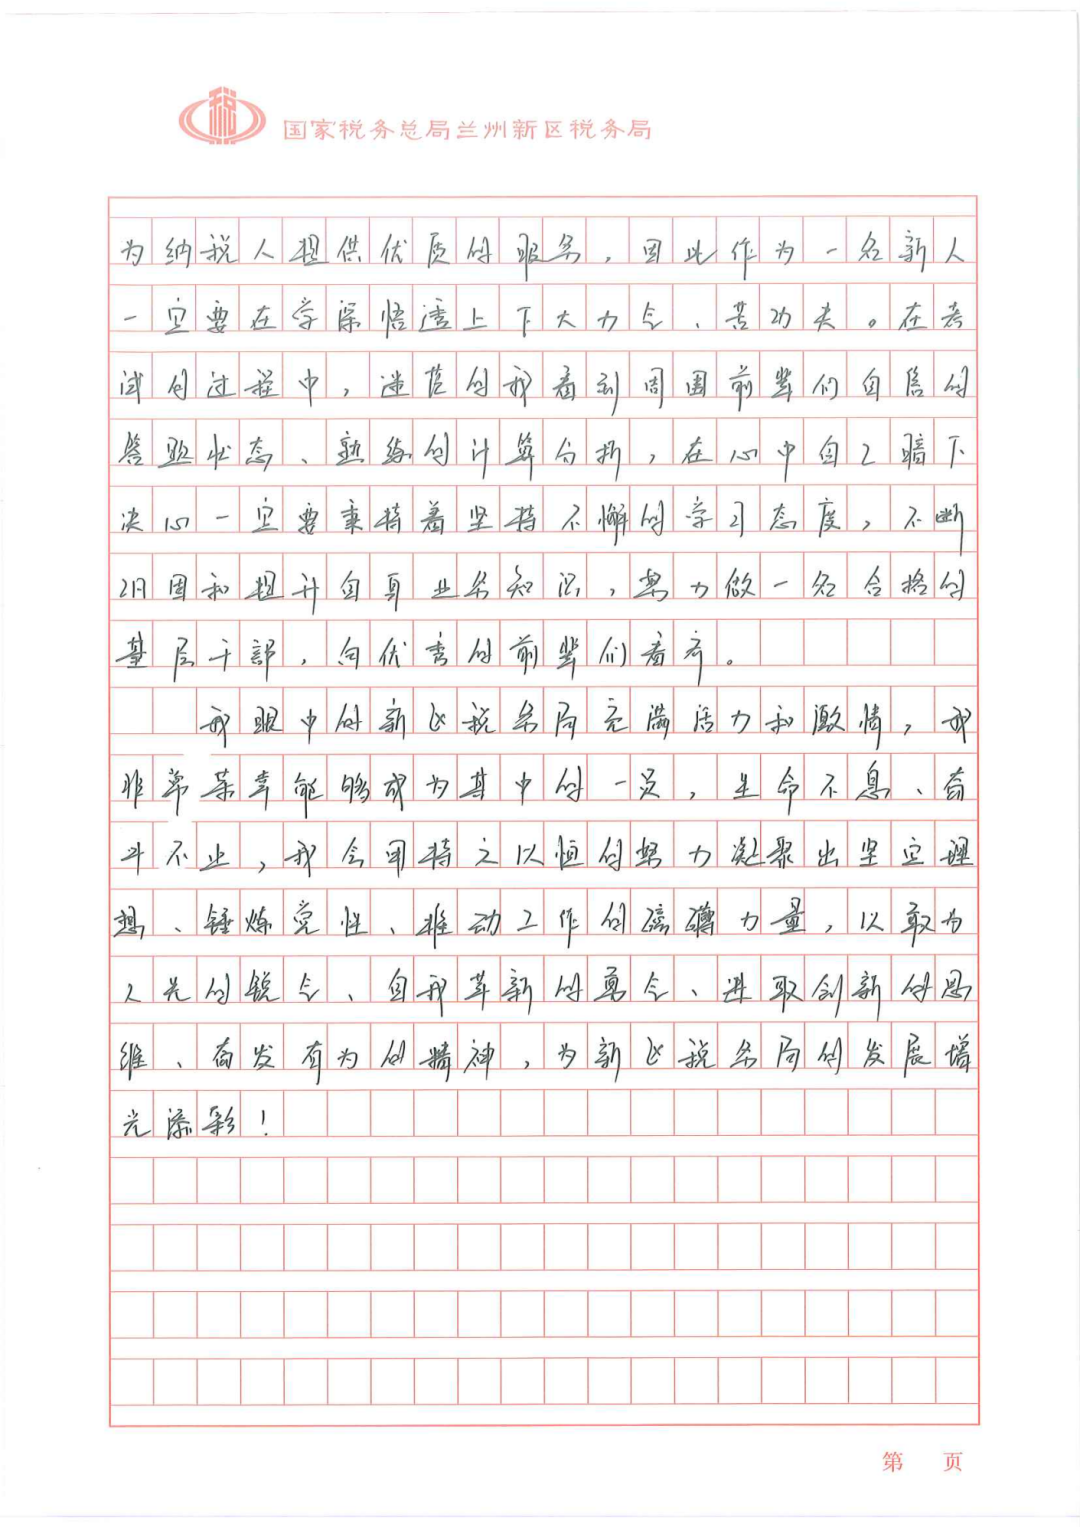 国家税务总局兰州新区税务局
为纳税人提供优质的服务,因此作为一名新人
一定要在学深悟透上下大力气、苦功夫。在考
试的过程中,迷茫的我看到周围前辈们自信的
答题状态、熟练的计算分析,在心中自己暗下
决心一定要秉持着坚持不懈的学习态度,不断
巩固和提升自身业务知识,努力做一名合格的
基层干部,向优秀的前辈们看齐。
我眼中的新区税务局充满活力和激情,我
非常荣幸能够成为其中的一员,生命不息、奋
斗不止,我会用持之以恒的努力凝聚出坚定理
想、锤炼党性、推动工作的磅礴力量,以敢为
人先的锐气、自我革新的勇气、进取创新的思
维、奋发有为的精神,为新区税务局的发展增
光添彩!
第 页